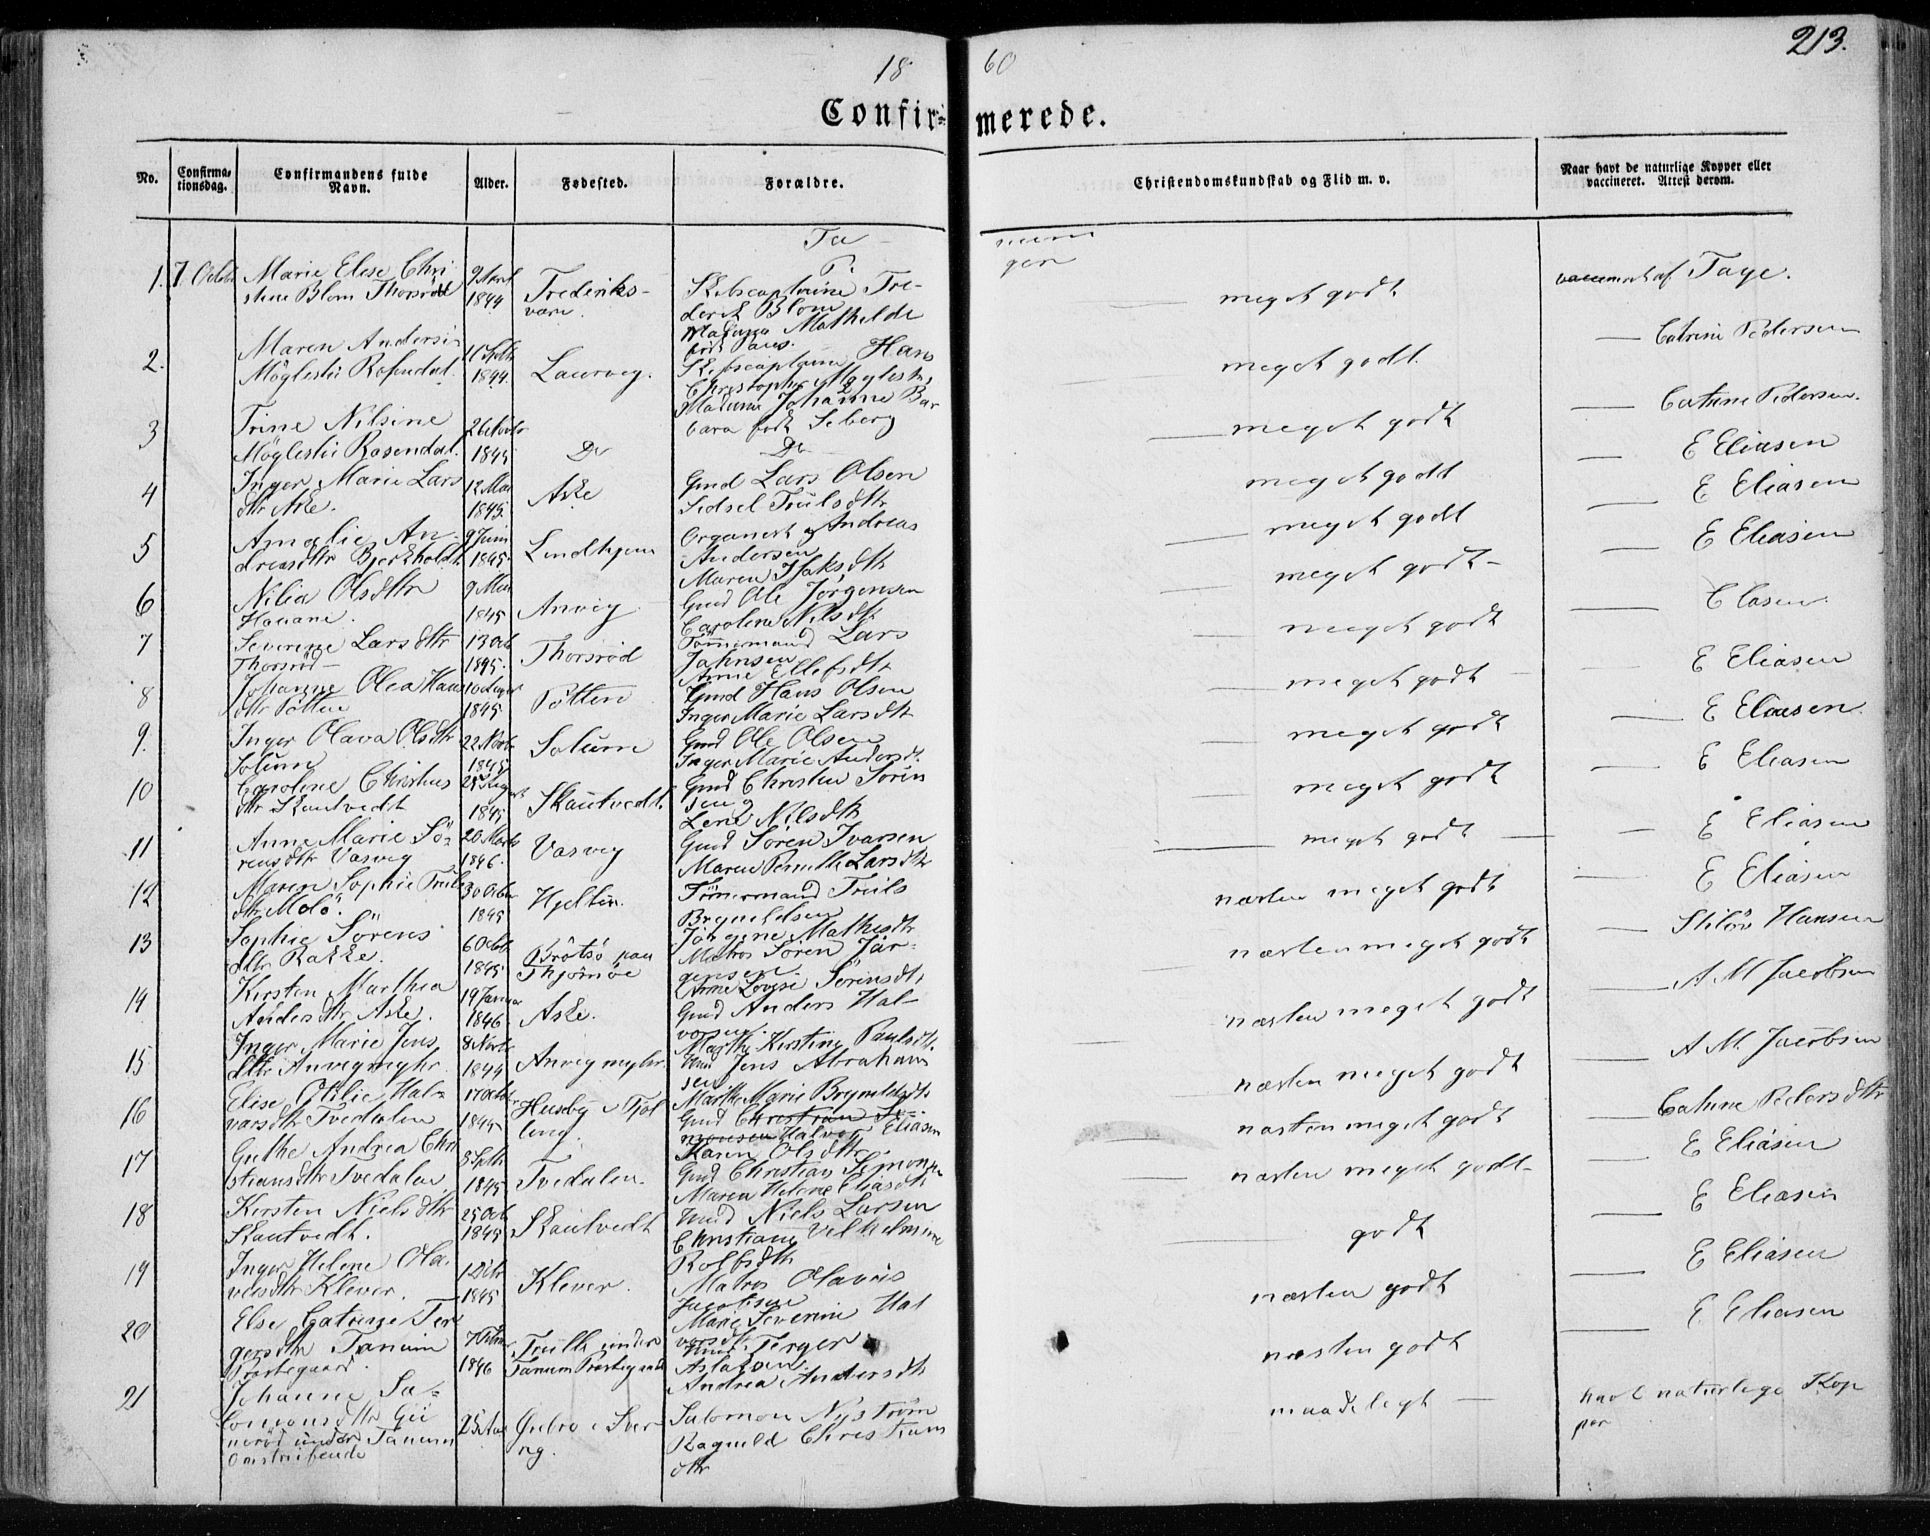 213.
18 60
Confir= merede.
No.
Confirma-
tionsdag.
Confirmandens fulde
Navn.
Alder.
Fødested.
Forældre.
Christendomskundskab og Flid m. v.
Naar havt de naturlige Kopper eller
vaccineret. Attest derom.
1. 7 Octobr Marie Elise Chri
stine Blom Thorsröd
1844
Frederiks-
værn.
Skibscaptaine Fre-
derik Blom
Madame Mathilde
født Paus.
meget godt
af Taye.
2. Maren
Möglestü
1844.
Laurvig.
Skibscaptaine Hans
Madame Johanne Bar
bara født Seberg
meget godt
Catrine Pedersen
3 Trine Nilsine
Möglestü Rosendal.
1845
Do
Do
meget godt
Catrine Pedersen.
4 Inger Marie Lars
dtr Aske.
12 Mai
1845.
Aske
Gmd Lars Olsen
Sidsel Trulsdtr
meget godt
E Eliasen
5 Amalie An-
dreasdtr Bjerkholdt
9 Juni
1845.
Lindhjem
Organist Andreas
Andersen
Maren Isaksdtr
meget godt
E Eliasen
6 Nilia Olsdtr
1845
Anvig
Gmd Ole Jörgensen
Caroline Nilsdtr
meget godt
E Eliasen
7 Severine Larsdtr
Thorsröd
13 Oct
1845.
Thorsröd
Tömmermand Lars
Jahnsen
Anne Ellefsdtr
meget godt
8 Johanne Olea Hans
dtr Pötten
1845
Pötten
Gmd Hans Olsen
Inger Marie Larsdtr
meget godt
E Eliasen
9. Inger Olava Olsdtr
Solum
22 Novbr
1845
Solum
Gmd Ole Olsen
Inger Marie Andersdt.
meget godt
E Eliasen.
10 Caroline Christens
dtr Skautvedt
1845
Skautvedt
Gmd Christen Sören
sen
Lene Nilsdtr
meget godt
E Eliasen
11 Anne Marie Sö-
rensdtr Vasvig
20 Marts
1846.
Vasvig
Gmd Sören Ivarsen
Maren Pernille Larsdtr
meget godt
E Eliasen
12 Maren Sophie Truls
dtr Molö.
30 Octbr
1845
Tömmermand Truls
Brynildsen
Jörgine Mathisdtr
næsten meget godt
E Eliasen
13 Sophie Sörens
dtr Rakke.
6 Octb
1845
Brötsö paa
Thjömöe
Matros Sören Jör-
gensen
Anne Lovise Sörensdtr
næsten meget godt
Hansen
14 Kirsten Marthea
Andersdtr Aske.
19 Januar
1846
Aske.
Gmd Anders Hal-
vorsen.
Marthe Kirstine Paulsdtr.
næsten meget godt
A M Jacobsen
15 Inger Marie Jens
dtr Anvigmyhr.
8 Novbr
1844
Anvigmyhr.
Jens Abraham
sen
Marthe Marie Brynildsdtr
næsten meget godt
A M Jacobsen
16 Elise Otilie Hal-
varsdtr Tvedalen
17 Octbr
1845
Husby i Tjöl
ling.
Gmd Christian Si-
monsen Halvor Eliasen
Karen Olsdtr.
næsten meget godt
Catrine Pedersdtr
17 Guthe Andrea Chri
stiansdtr Tvedalen
1845
Tvedalen.
Gmd Christian Simonsen
Maren Helene Eliasdtr
næsten meget godt
E Eliasen
18 Kirsten Nielsdtr
Skautvedt.
25 Oct
1845
Skautvedt
Niels Larsen
Christiane Vilhelmine
Rolfsdtr
godt
E Eliasen
19 Inger Helene Ola-
vesdtr Klever.
1845
Klever.
Matros Olaves
Jacobsen
Marie Severine Hal
vorsdtr
næsten godt
E Eliasen
20 Else Catrine Ter
gersdtr Tanum
Præstegaard.
1846
under
Tanum Præstegaard
Terger
Aslaksen
Andrea Andersdtr
næsten godt
E Eliasen
21 Johanne Sa-
lomonsdtr
under Tanum
Omstreifende
Örebro i Sver
rig.
Salomon Nyström
Ragnild Christians
dtr
maadeligt
havt naturlige Kop
per